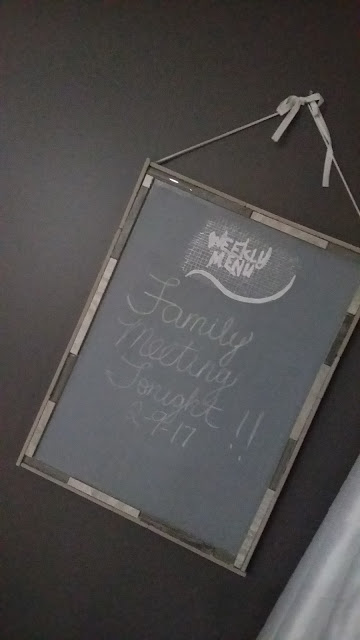 WEEKLY
MENU
Family
Meeting
Tonight !!
2-9-17